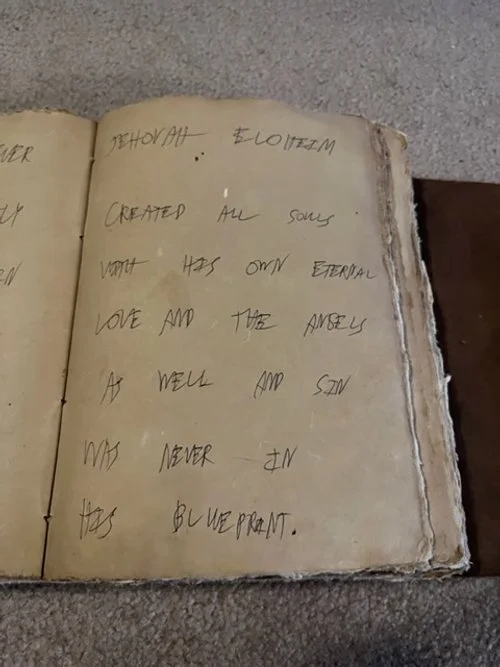 VER
JEHOVAH ELOHEIM
CREATED ALL SOULS
LY
WITH HIS OWN ETERNAL
RN
LOVE AND THE ANGELS
AS WELL AND SIN
WAS NEVER IN
HIS BLUEPRINT.